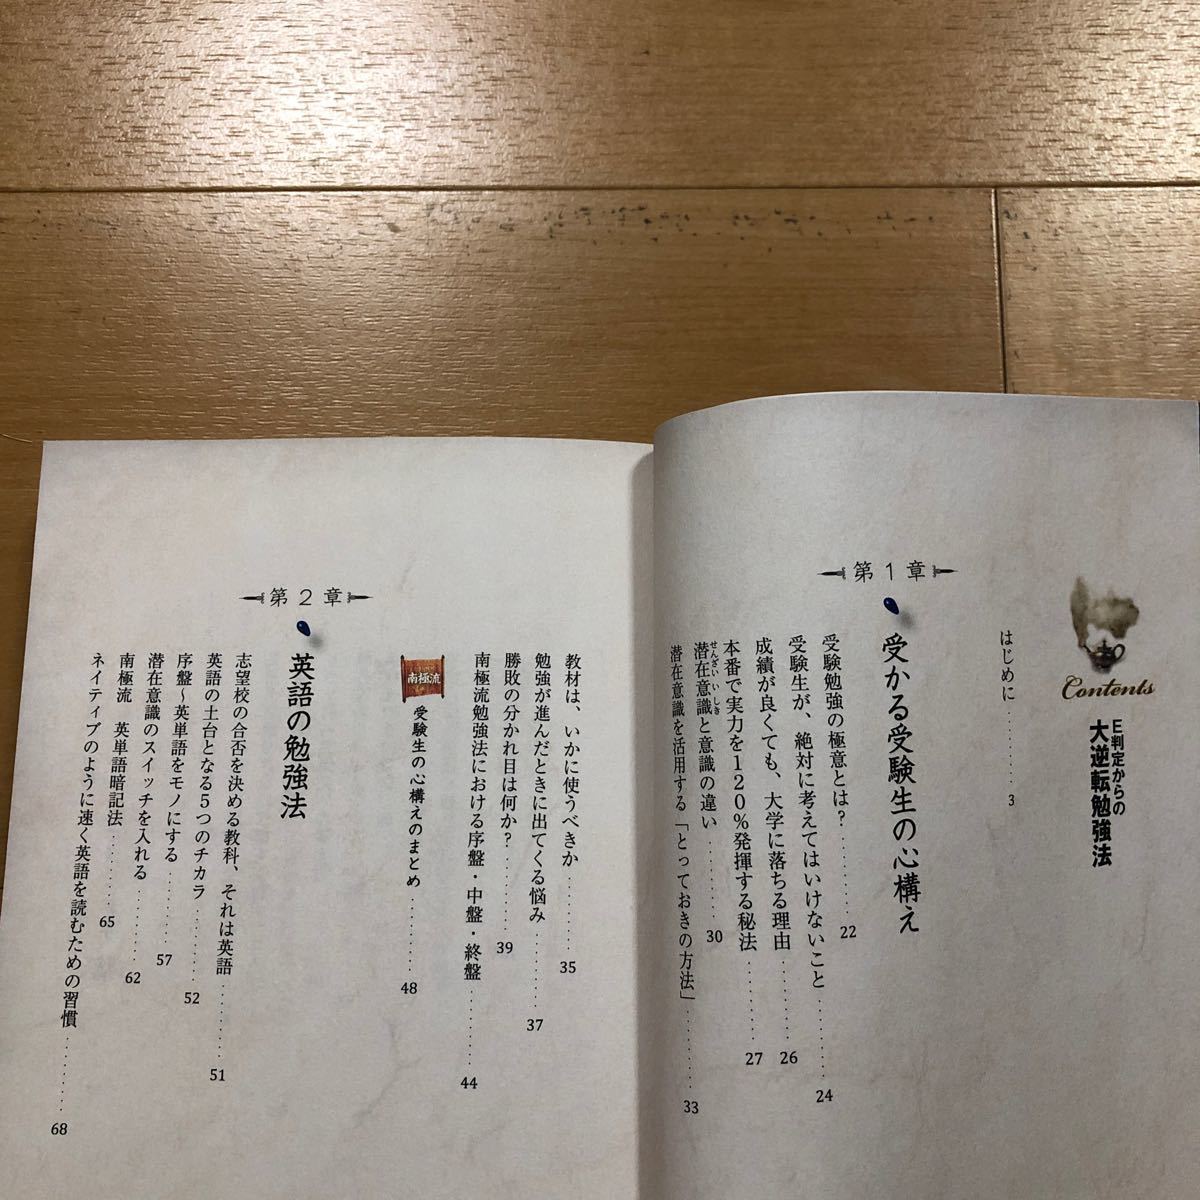 Contents
E判定からの
大逆転勉強法
はじめに………3
第1章
受かる受験生の心構え
受験勉強の極意とは？………22
受験生が、絶対に考えてはいけないこと………24
成績が良くても、大学に落ちる理由………26
本番で実力を120％発揮する秘法………27
潜在意識と意識の違い………30
せんざいいしき
潜在意識を活用する「とっておきの方法」………33
教材は、いかに使うべきか………35
勉強が進んだときに出てくる悩み………37
勝敗の分かれ目は何か？………39
南極流勉強法における序盤・中盤・終盤………44
南極流 受験生の心構えのまとめ………48
第2章
英語の勉強法
志望校の合否を決める教科、それは英語………51
英語の土台となる5つのチカラ………52
序盤〜英単語をモノにする………57
潜在意識のスイッチを入れる………62
南極流　英単語暗記法………65
ネイティブのように速く英語を読むための習慣………68